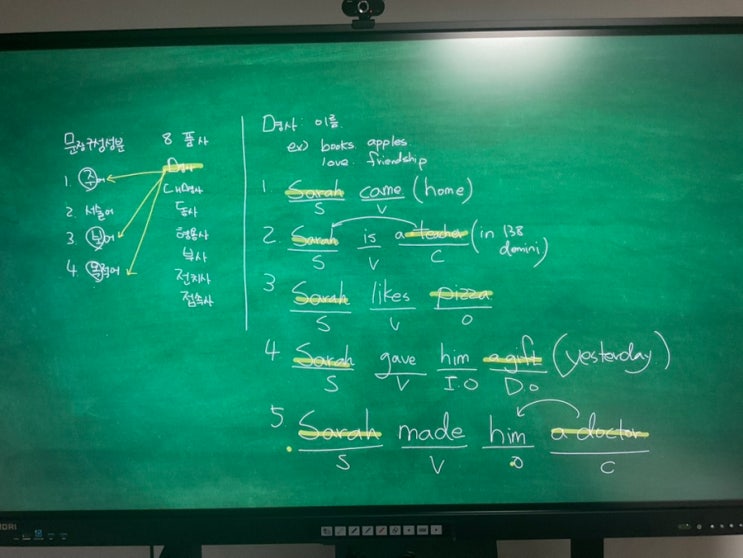 문장구성성분
1. 주어
2. 서술어
3. 보어
4. 목적어
8 품사
명사
대명사
동사
형용사
부사
전치사
접속사
명사: 이름
ex) books apples
love friendship
1 Sarah came (home)
S V
2. Sarah is a teacher (in 138
domini)
S V C
3 Sarah likes pizza
S V O
4 Sarah gave him a gift (yesterday)
S V I.O D.O
5 Sarah made him a doctor
S V O C